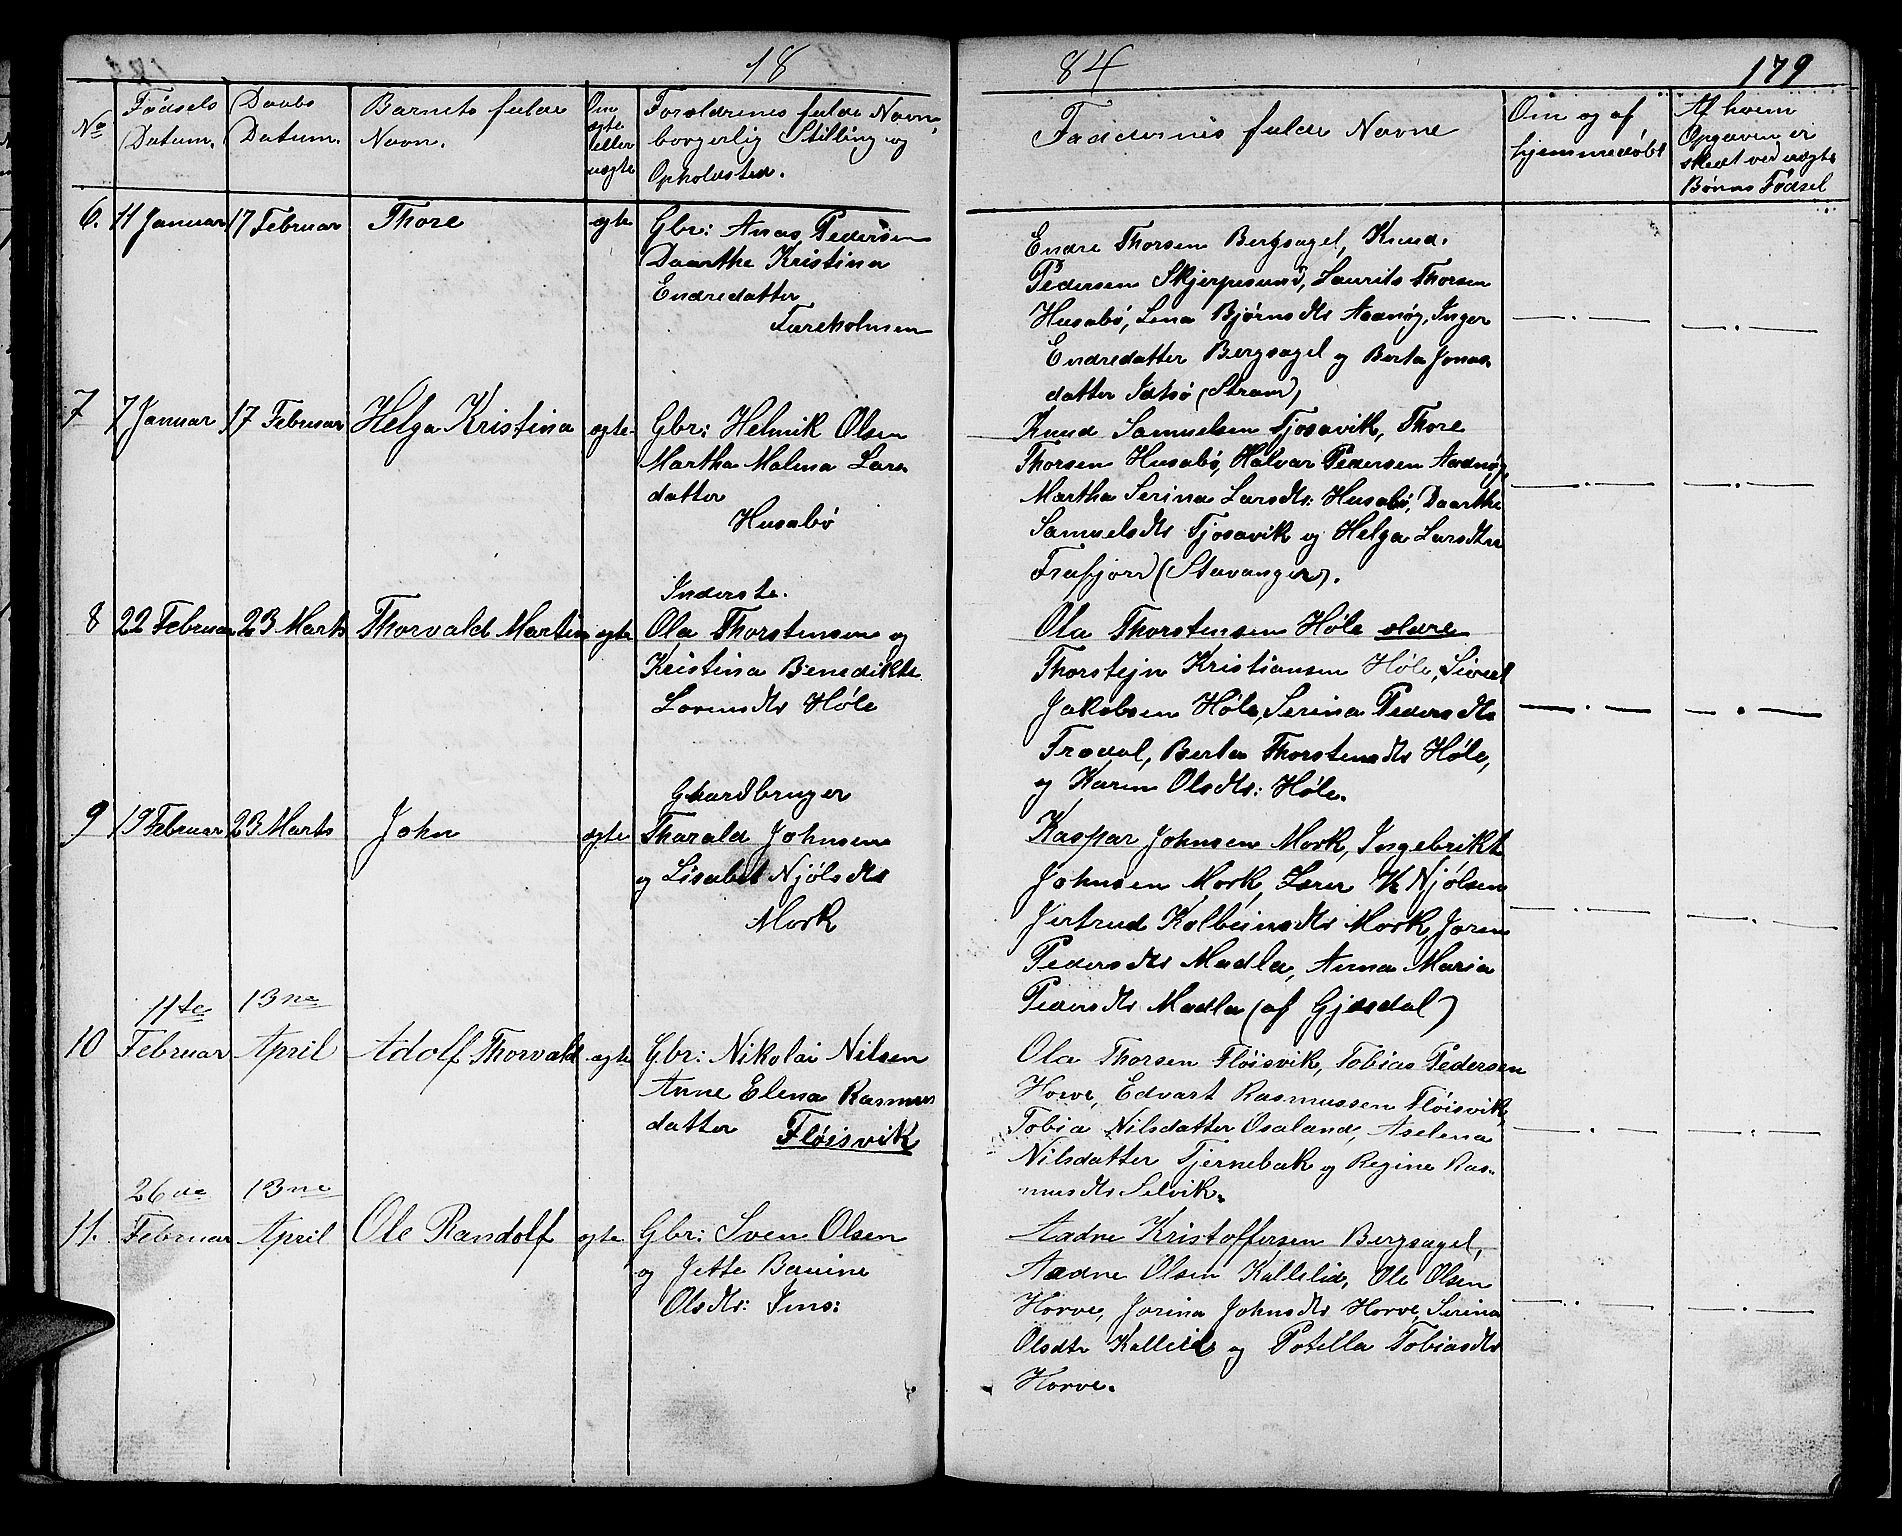 18
84
179
No
Fødsels Datum.
Daabs Datum.
Barnets fulde Navn.
Om ægte eller uægte
Forældrenes fulde Navn, borgerlig Stilling og Opholdsted.
Faddernes fulde Navne
Om og af hjemmedøbt
Af hvem Opgaven er skedt ved uægte Børns Fødsel
6. 11 Januar 17 Februar Thore ægte
Gbr: Anas Pedersen
Daarthe Kristina
Endredatter
Tareholmen
Endre Thorsen Bergsagel, Knud
Pedersen Skjerpesund, Laurits Thorsen
Husabø, Lena Bjørnsdtr Aadnøg, Inger
Endredatter Bergsagel og Berta Jonas
datter Idsø (Strand)
7 7 Januar 17 Februar Helga Kristina ægte
Gbr: Helmik Olsen
Martha Malena Lars
datter
Husabø
Knud Samuelsen Tjosavik, Thore
Thorsen Husabø, Halvar Pedersen Aadnøg,
Martha Serina Larsdtr: Husabø, Daarthe
Samuelsdtr Tjosavik og Helga Larsdtr
Frafjord (Stavanger).
8 22 Februar 23 Marts Thorvald Martin ægte
Inderste.
Ola Thorstensen og
Kristina Benedikte
Lorensdtr Høle
Ola Thorstensen Høle ældre
Thorstejn Kristiansen Høle, Sivert
Jakobsen Høle, Serina Pedersdtr
Frædal, Berta Thorstensdtr Høle,
og Karen Olsdtr: Høle.
9 19 Februar 23 Marts John ægte
Gaardbruger
Tharald Johnsen
og Lisabet Njølsdtr
Mork
Kaspar Johnsen Mork, Ingebrikt
Johnsen Mork, Lærer K Njølsen
Jertrud Kolbeinsdtr Mork, Joren
Pedersdtr Madla, Anna Maria
Pedersdtr Madla (af Gjesdal)
10 11te Februar 13ne April Adolf Thorvald ægte
Gbr: Nikolai Nilsen
Anne Elena Rasmus
datter Fløisvik
Ola Thorsen Fløisvik, Tobias Pedersen
Horve, Edvart Rasmussen Fløisvik,
Tobia Nilsdatter Osaland, Aselena
Nilsdatter Tjernebak og Regine Ras-
musdtr Selvik.
11. 26de Februar 13ne April Ole Randolf ægte
Gbr: Sven Olsen
og Jette Bauine
Olsdtr: Ims:
Aadne Kristoffersen Bergsagel,
Aadne Olsen Kallelid, Ole Olsen
Horve, Jorina Johnsdtr Horve, Serina
Olsdtr Kallelid og Potella Tobiasdtr
Horve.